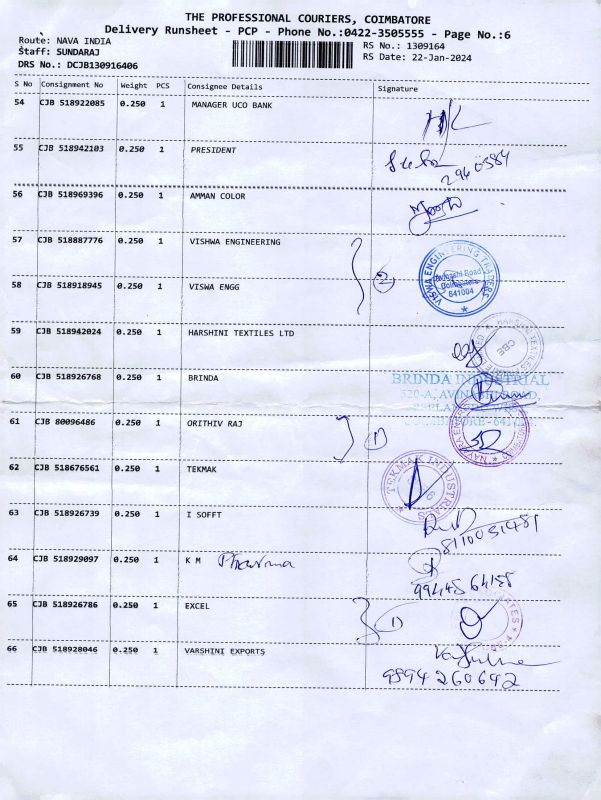 THE PROFESSIONAL COURIERS, COIMBATORE
Delivery Runsheet - PCP - Phone No.:0422-3505555 - Page No.:6
Route: NAVA INDIA
RS No.: 1309164
Staff: SUNDARAJ
RS Date: 22-Jan-2024
DRS No.: DCJB130916406
S No Consignment No Weight PCS Consignee Details Signature
54 CJB 518922085 0.250 1 MANAGER UCO BANK
55 CJB 518942103 0.250 1 PRESIDENT
56 CJB 518969396 0.250 1 AMMAN COLOR
57 CJB 518887776 0.250 1 VISHWA ENGINEERING
2
VISWA ENGINEERING TRADERS
Coimbatore
641004
58 CJB 518918945 0.250 1 VISWA ENGG
59 CJB 518942024 0.250 1 HARSHINI TEXTILES LTD
CBE
60 CJB 518926768 0.250 1 BRINDA
BRINDA INDUSTRIAL
520-A, AVINASHI ROAD,
61 CJB 80096486 0.250 1 ORITHIV RAJ
1
62 CJB 518676561 0.250 1 TEKMAK
TEKMAK INDUSTRIALS
63 CJB 518926739 0.250 1 I SOFFT
8110031481
64 CJB 518929097 0.250 1 K M Pharma
65 CJB 518926786 0.250 1 EXCEL
1
66 CJB 518928046 0.250 1 VARSHINI EXPORTS
9894260642